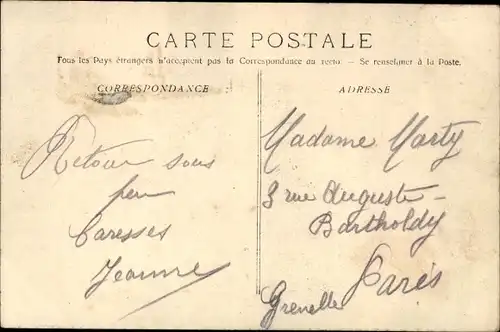 CARTE POSTALE
Tous les Pays étrangers n'acceptent pas la Correspondance au recto. — Se renseigner à la Poste.
CORRESPONDANCE
Retour sous
peu
Caresses
Jeanne
ADRESSE
Madame Marty
3 rue Auguste-
Bartholdy
Paris
Grenelle